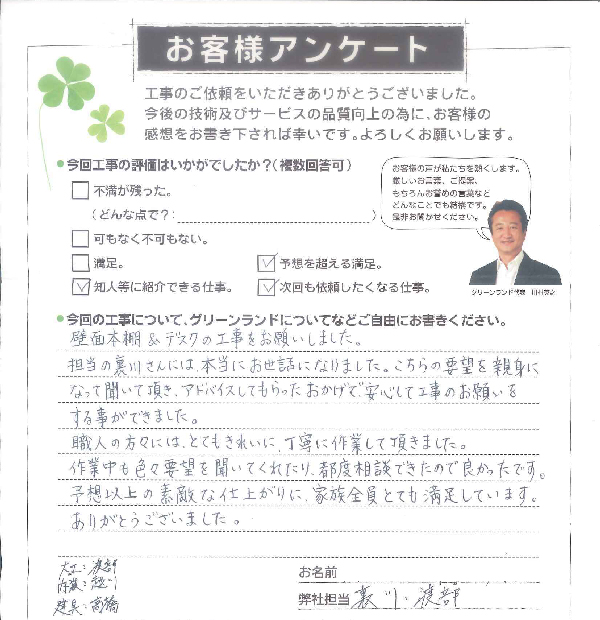 お客様アンケート
工事のご依頼をいただきありがとうございました。
今後の技術及びサービスの品質向上の為に、お客様の
感想をお書き下されば幸いです。よろしくお願いします。
●今回工事の評価はいかがでしたか?(複数回答可)
不満が残った。
(どんな点で?:
)
可もなく不可もない。
満足。
予想を超える満足。
知人等に紹介できる仕事。
次回も依頼したくなる仕事。
お客様の声が私たちを熱くします。
厳しいお言葉、ご提案、
もちろんお誉めの言葉など
どんなことでも結構です。
是非お聞かせください。
グリーンランド代表
●今回の工事について、グリーンランドについてなどご自由にお書きください。
壁面本棚&デスクの工事をお願いしました。
担当の裏川さんには、本当にお世話になりました。こちらの要望を親身に
なって聞いて頂き、アドバイスしてもらったおかげで安心して工事のお願いを
する事ができました。
職人の方々には、とてもきれいに、丁寧に作業して頂きました。
作業中も色々要望を聞いてくれたり、都度相談できたので良かったです。
予想以上の素敵な仕上がりに、家族全員とても満足しています。
ありがとうございました。
大工:渡部
内装:
建具:高橋
お名前
弊社担当 裏川・渡部